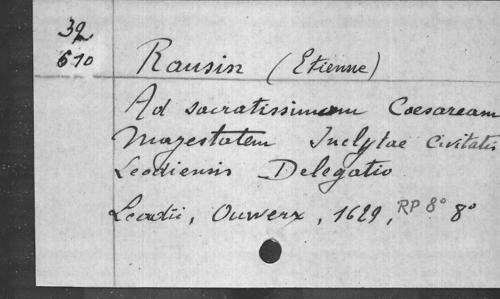 32
610
Rausin (Etienne)
Ad sacratissimam Caesaream
Majestatem Inclytae Civitatis
Leodiensis Delegatio
Leodii, Ouwerx, 1629, RP 8° 8°